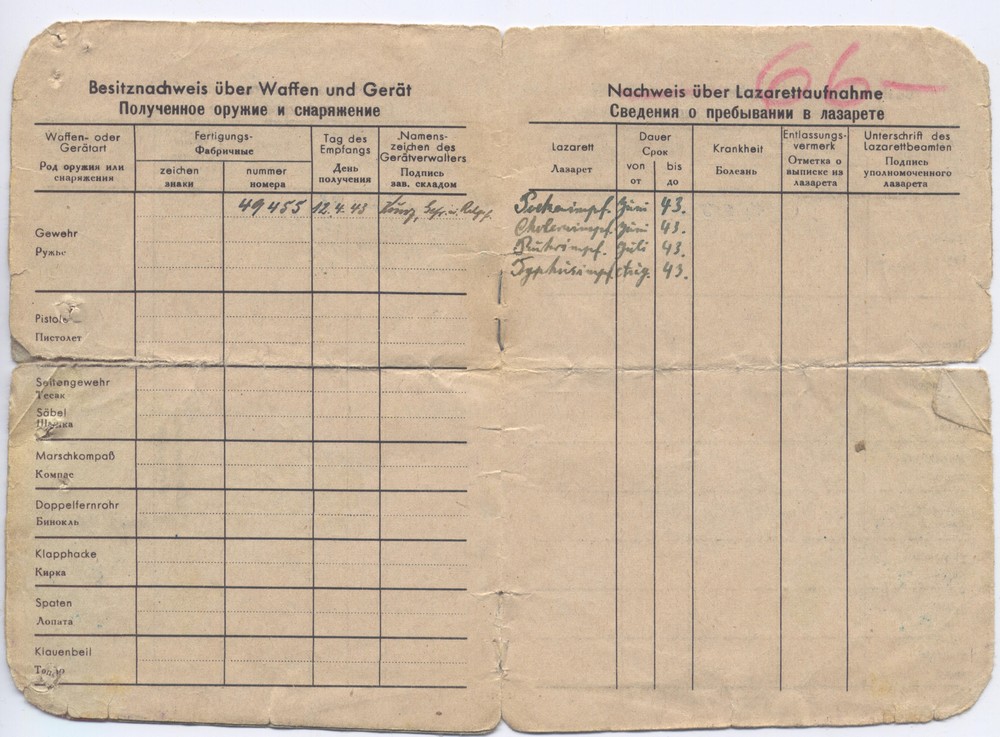 Besitznachweis über Waffen und Gerät
Полученное оружие и снаряжение
Waffen- oder Gerätart
Род оружия или снаряжения
Fertigungs-
Фабричные
zeichen
знаки
nummer
номера
Tag des Empfangs
День получения
Namenszeichen des Gerätverwalters
Подпись зав. складом
49455 12.4.43
Gewehr
Ружье
Pistole
Пистолет
Seitengewehr
Тесак
Säbel
Marschkompaß
Компас
Doppelfernrohr
Бинокль
Klapphacke
Кирка
Spaten
Лопата
Klauenbeil
66—
Nachweis über Lazarettaufnahme
Сведения о пребывании в лазарете
Lazarett
Лазарет
Dauer
Срок
von
от
bis
до
Krankheit
Болезнь
Entlassungs-
vermerk
Отметка о
выписке из
лазарета
Unterschrift des
Lazarettbeamten
Подпись
уполномоченного
лазарета
Pockenimpf. Juni 43.
Choleraimpf. Juni 43.
Ruhrimpf. Juli 43.
Typhusimpf. Aug. 43.